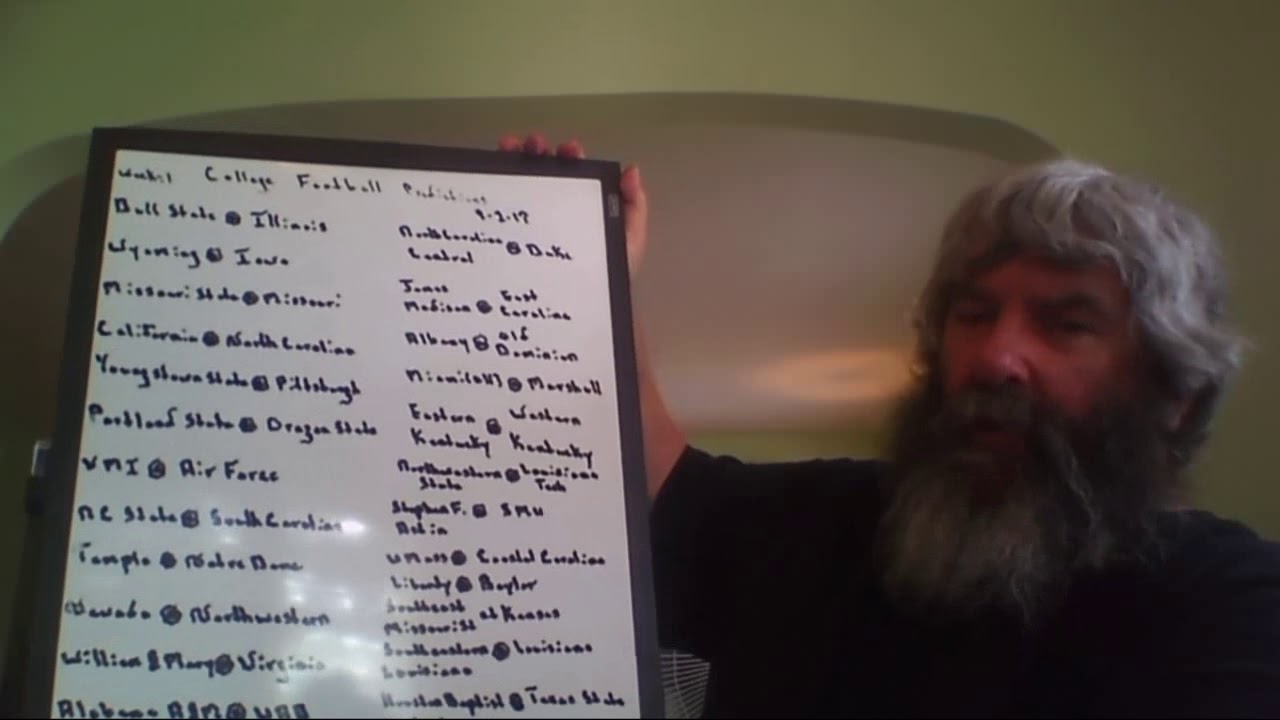 Week 1 College Football Predictions
9-2-17
Ball State @ Illinois
Wyoming @ Iowa
Missouri State @ Missouri
California @ North Carolina
Youngstown State @ Pittsburgh
Portland State @ Oregon State
VMI @ Air Force
NC State @ South Carolina
Temple @ Notre Dame
Nevada @ Northwestern
William & Mary @ Virginia
Alabama A&M @ UAB
North Carolina @ Duke
Central
James East
Madison @ Carolina
Albany @ Old
Dominion
Miami(OH) @ Marshall
Eastern @ Western
Kentucky Kentucky
Northwestern @ Louisiana
State Tech
Stephen F. @ SMU
UMass @ Coastal Carolina
Liberty @ Baylor
Southeast at Kansas
Missouri St
Southeastern @ Louisiana
Louisiana
Houston Baptist @ Texas State